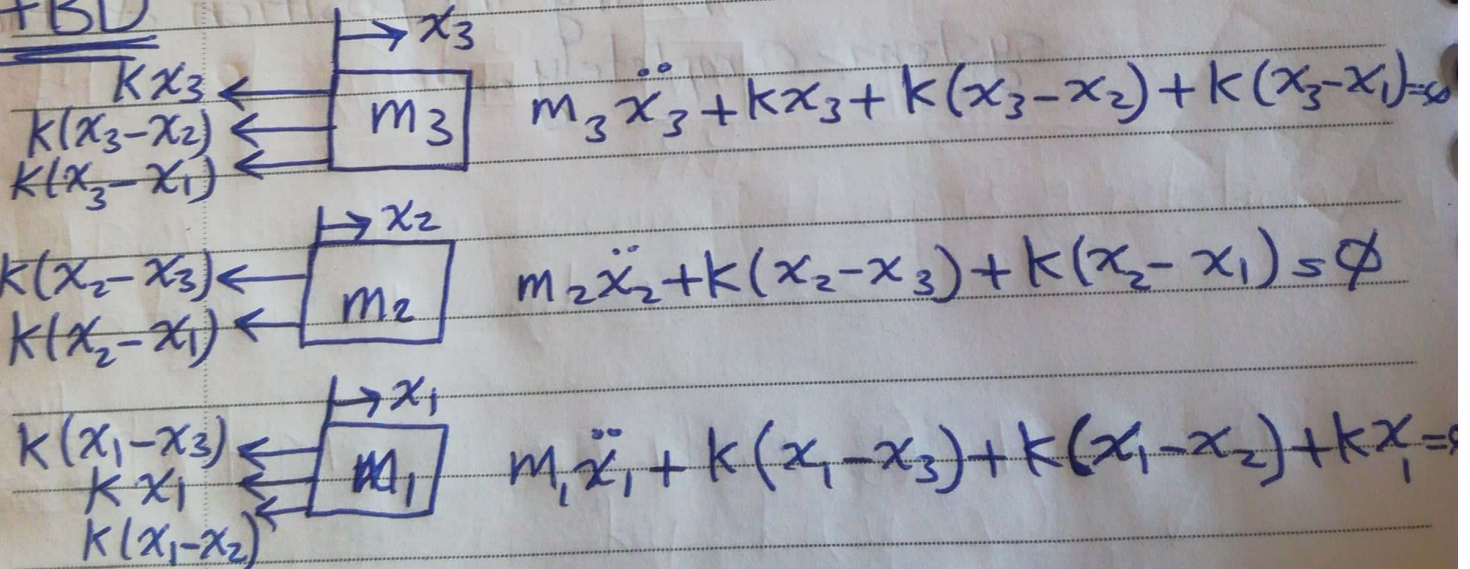 FBD
x₃
kx₃
k(x₃-x₂)
k(x₃-x₁)
m₃
m₃ẍ₃+kx₃+k(x₃-x₂)+k(x₃-x₁)=0
x₂
k(x₂-x₃)
k(x₂-x₁)
m₂
m₂ẍ₂+k(x₂-x₃)+k(x₂-x₁)=0
x₁
k(x₁-x₃)
kx₁
k(x₁-x₂)
m₁
m₁ẍ₁+k(x₁-x₃)+k(x₁-x₂)+kx₁=